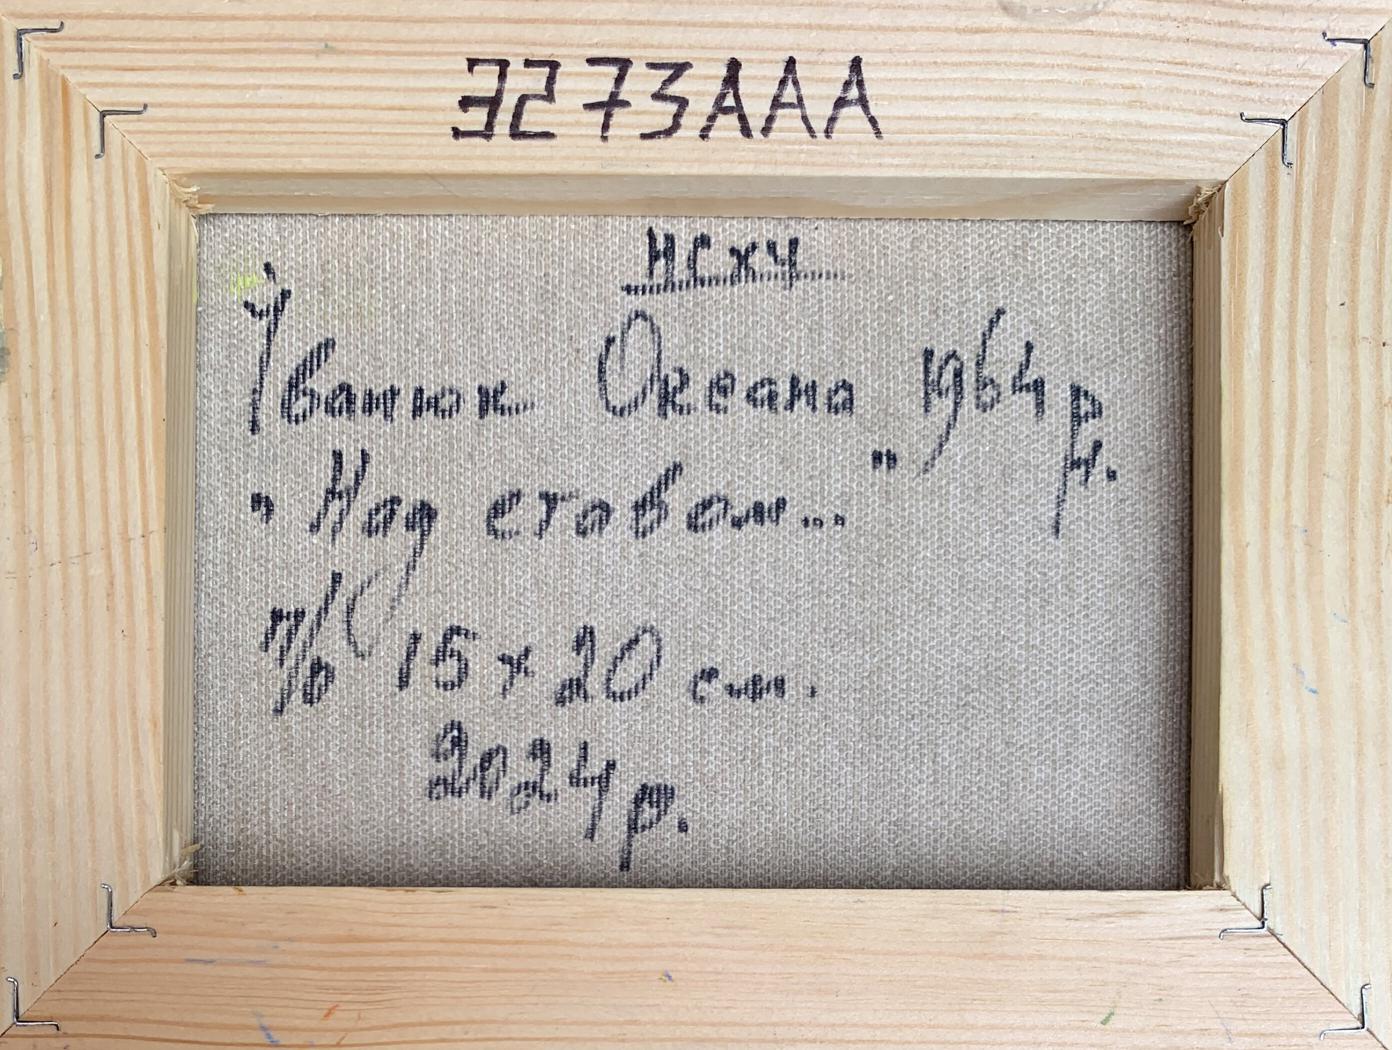 3273AAA
НСХУ
Іванюк Оксана 1964 р.н.
"Над ставом..."
п/о 15 х 20 см.
2024 р.